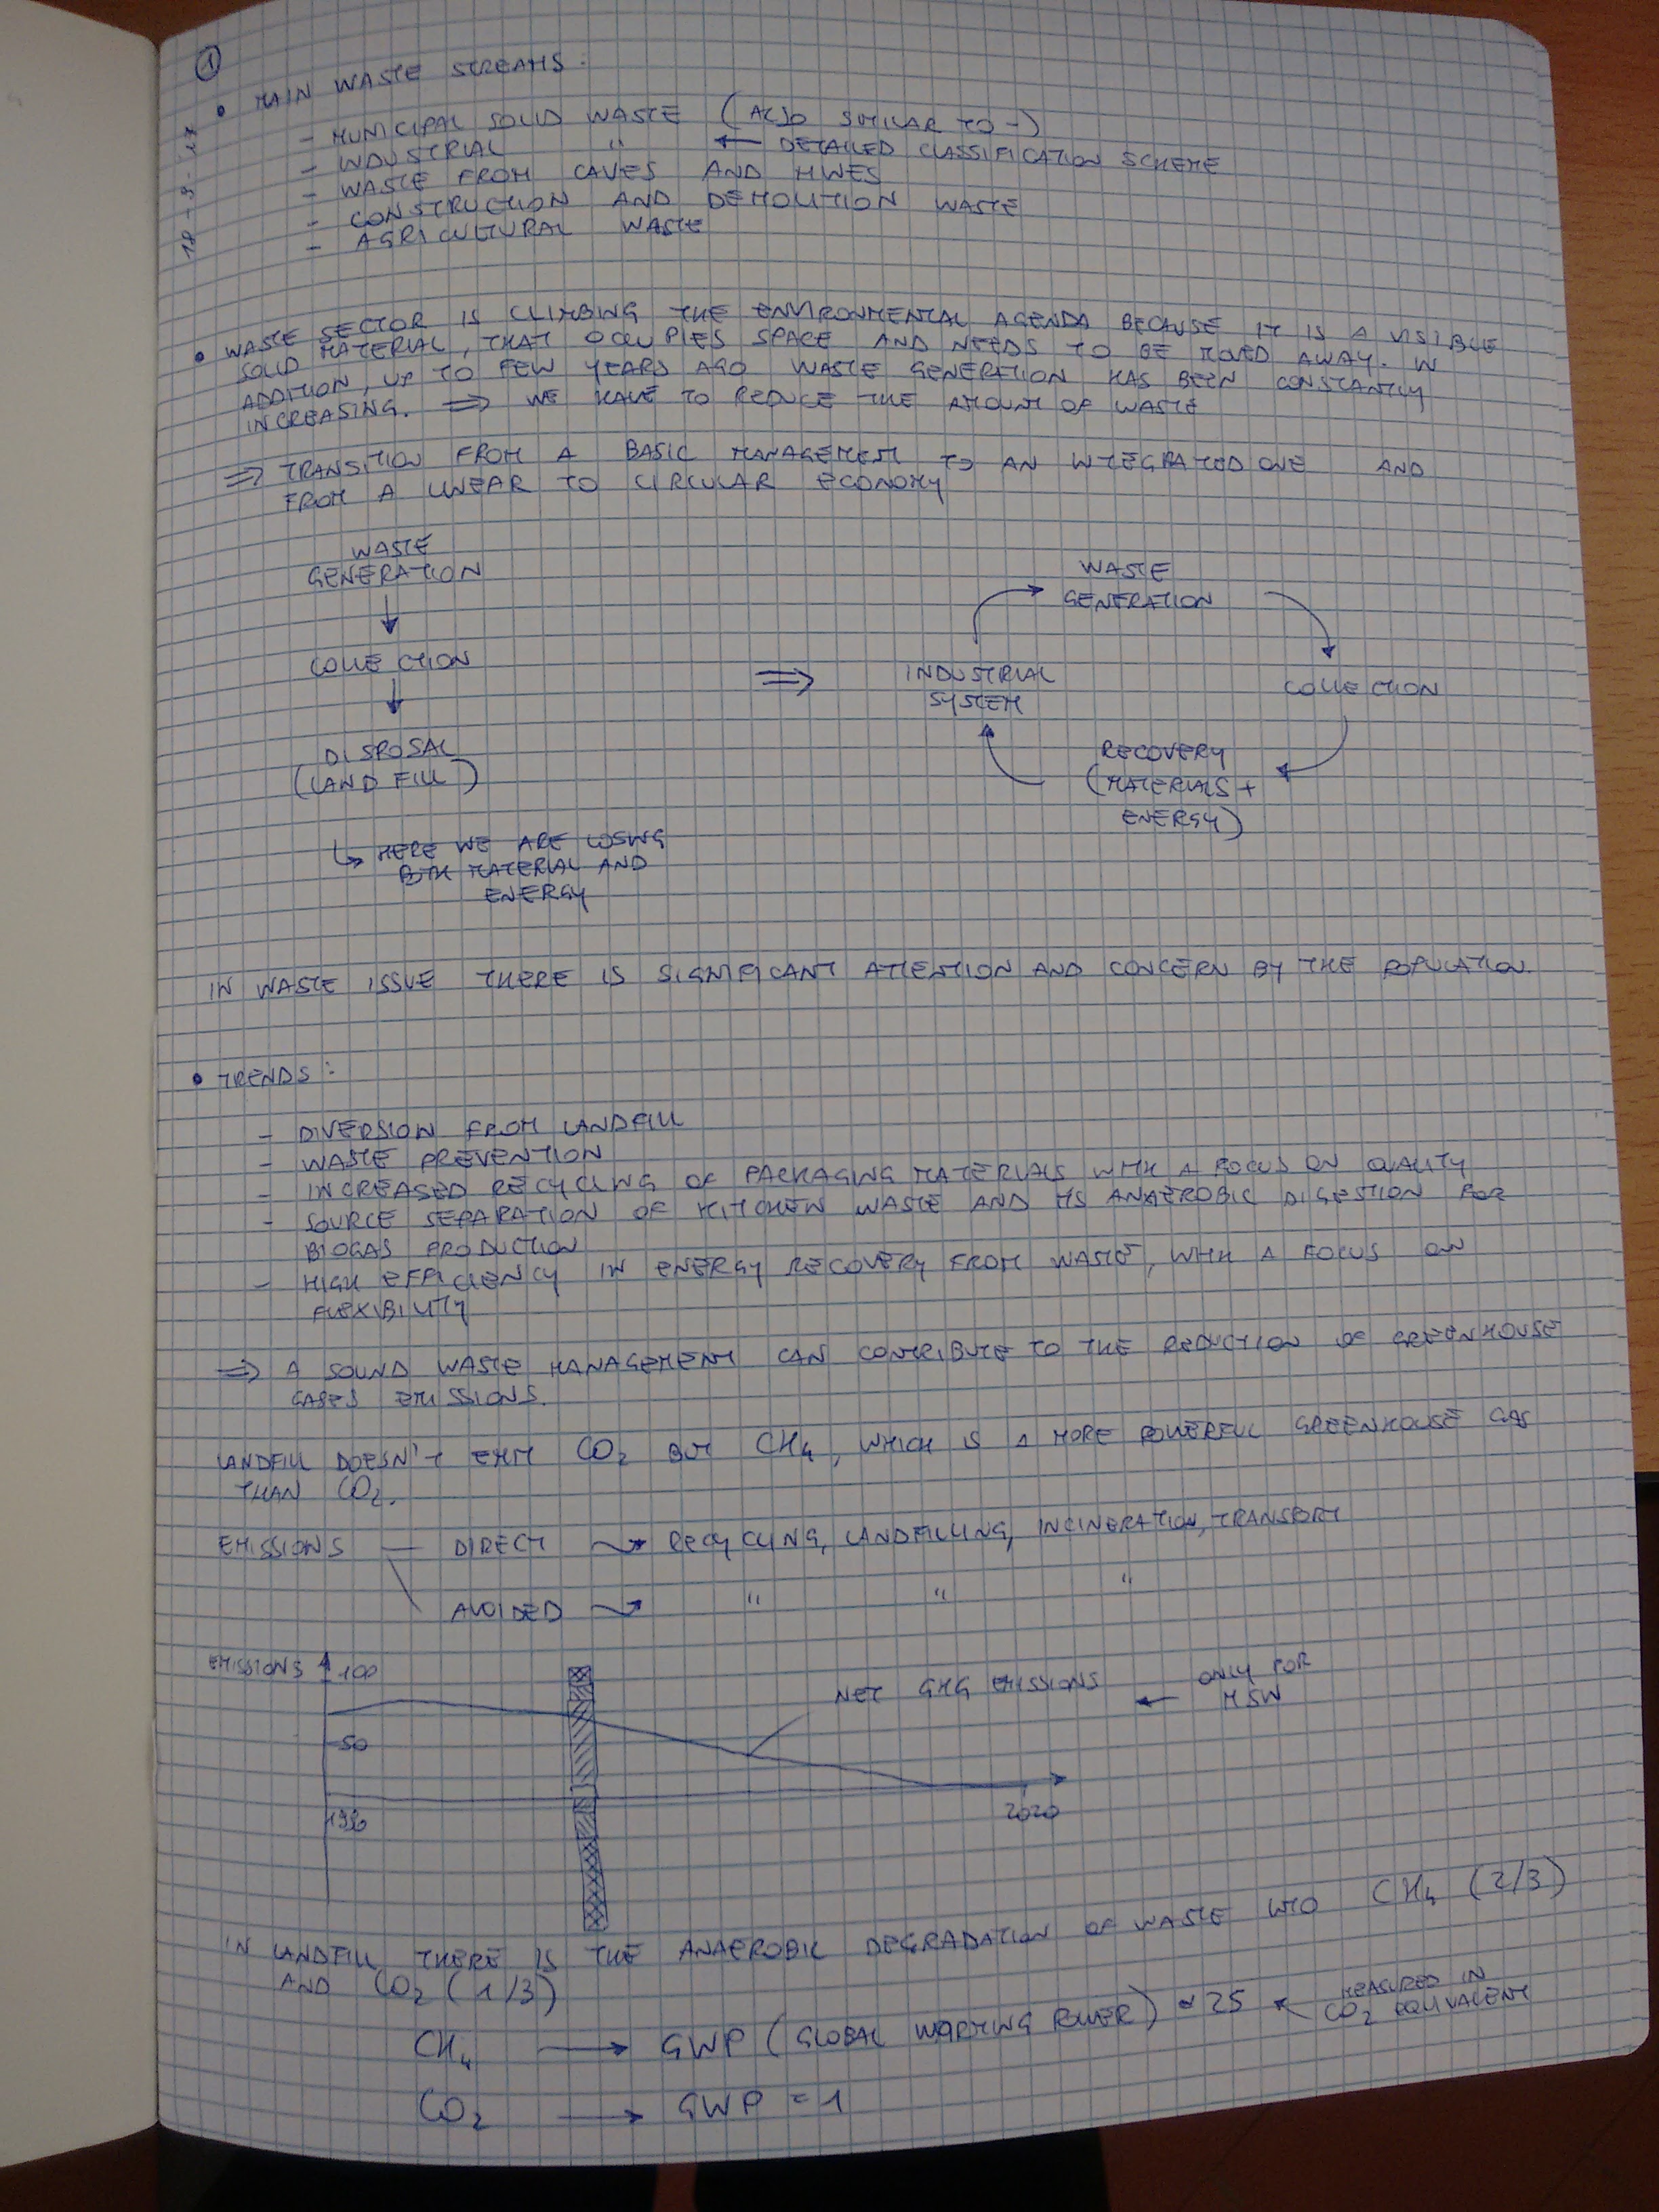 ①
18-9-17
• MAIN WASTE STREAMS:
- MUNICIPAL SOLID WASTE (ALSO SIMILAR TO -)
- INDUSTRIAL " ← DETAILED CLASSIFICATION SCHEME
- WASTE FROM CAVES AND MINES
- CONSTRUCTION AND DEMOLITION WASTE
- AGRICULTURAL WASTE
• WASTE SECTOR IS CLIMBING THE ENVIRONMENTAL AGENDA BECAUSE IT IS A VISIBLE
SOLID MATERIAL, THAT OCCUPIES SPACE AND NEEDS TO BE MOVED AWAY. IN
ADDITION, UP TO FEW YEARS AGO WASTE GENERATION HAS BEEN CONSTANTLY
INCREASING. ⇒ WE HAVE TO REDUCE THE AMOUNT OF WASTE
⇒ TRANSITION FROM A BASIC MANAGEMENT TO AN INTEGRATED ONE AND
FROM A LINEAR TO CIRCULAR ECONOMY
WASTE
GENERATION
↓
COLLECTION
↓
DISPOSAL
(LANDFILL)
↳ HERE WE ARE LOSING
BOTH MATERIAL AND
ENERGY
⇒
WASTE
GENERATION
COLLECTION
RECOVERY
(MATERIALS +
ENERGY)
INDUSTRIAL
SYSTEM
IN WASTE ISSUE THERE IS SIGNIFICANT ATTENTION AND CONCERN BY THE POPULATION.
• TRENDS:
- DIVERSION FROM LANDFILL
- WASTE PREVENTION
- INCREASED RECYCLING OF PACKAGING MATERIALS WITH A FOCUS ON QUALITY
- SOURCE SEPARATION OF KITCHEN WASTE AND ITS ANAEROBIC DIGESTION FOR
BIOGAS PRODUCTION
- HIGH EFFICIENCY IN ENERGY RECOVERY FROM WASTE, WITH A FOCUS ON
FLEXIBILITY
⇒ A SOUND WASTE MANAGEMENT CAN CONTRIBUTE TO THE REDUCTION OF GREENHOUSE
GASES EMISSIONS.
LANDFILL DOESN'T EMIT CO2 BUT CH4, WHICH IS A MORE POWERFUL GREENHOUSE GAS
THAN CO2.
EMISSIONS — DIRECT → RECYCLING, LANDFILLING, INCINERATION, TRANSPORT
AVOIDED → " " "
EMISSIONS 100
50
1990
2020
NET GHG EMISSIONS ← ONLY FOR
MSW
IN LANDFILL THERE IS THE ANAEROBIC DEGRADATION OF WASTE INTO CH4 (2/3)
AND CO2 (1/3)
CH4 → GWP (GLOBAL WARMING POWER) ≃ 25 ← MEASURED IN
CO2 EQUIVALENT
CO2 → GWP = 1